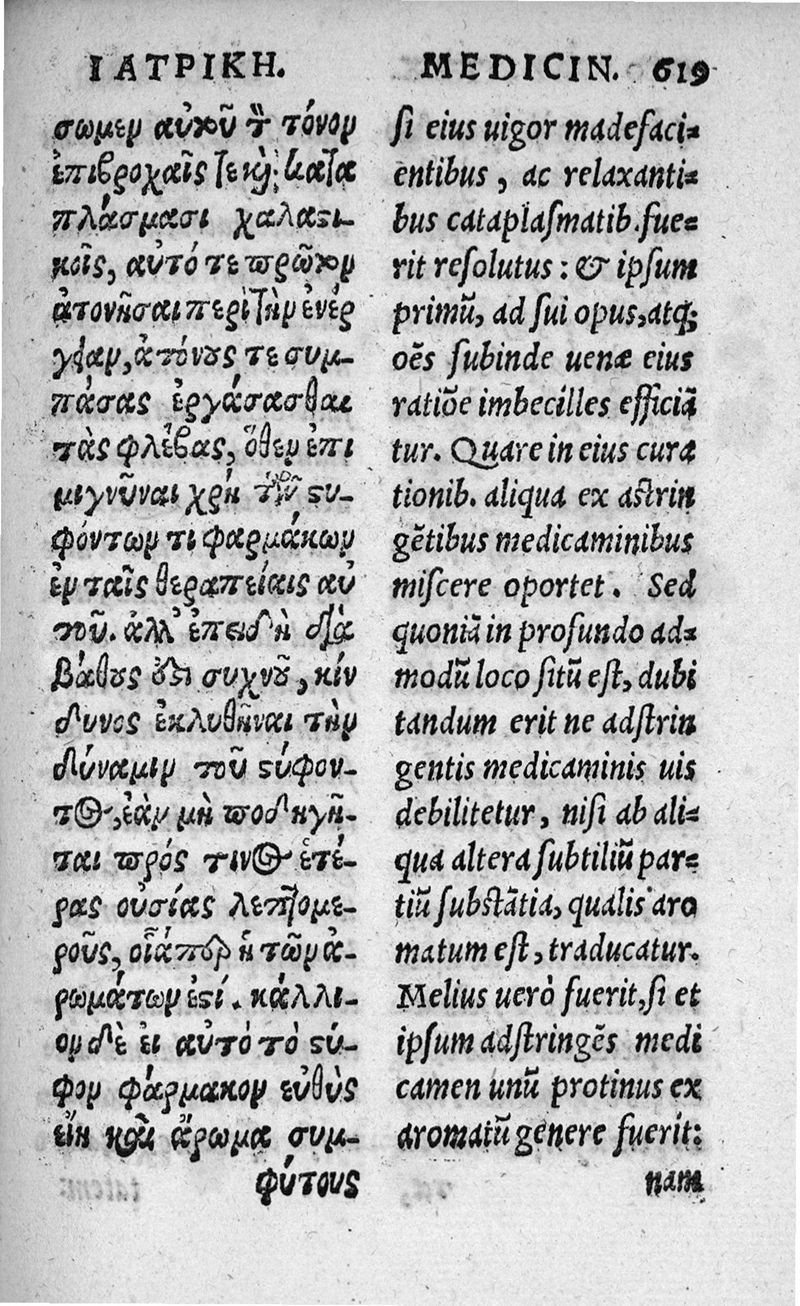 ΙΑΤΡΙΚΗ.
σωμεν αὐτοῦ τὸν τόνον
ἐπιβροχαῖς τε καὶ κατα
πλάσμασι χαλαστι-
κοῖς, αὐτό τε πρῶτον
ἀτονῆσαι περὶ τὴν ἐνέρ
γειαν, ἀτόνους τε συμ-
πάσας ἐργάσασθαι
τὰς φλέβας, ὅθεν ἐπι
μιγνῦναι χρὴ τῶν στυ-
φόντων τι φαρμάκων
ἐν ταῖς θεραπείαις αὐ
τοῦ. ἀλλ' ἐπειδὴ διὰ
βάθους ἐστὶ συχνοῦ, κίν
δυνος ἐκλυθῆναι τὴν
δύναμιν τοῦ στύφον-
τος, ἐὰν μὴ ποδηγῆ-
ται πρός τινος ἑτέ-
ρας οὐσίας λεπτομε-
ροῦς, οἵαπερ ἡ τῶν ἀ-
ρωμάτων ἐστί. κάλλι-
ον δὲ εἰ αὐτὸ τὸ στύ-
φον φάρμακον εὐθὺς
εἴη καὶ ἄρωμα συμ-
φύτους
MEDICIN. 619
ſi eius uigor madefaci-
entibus, ac relaxanti-
bus cataplaſmatib. fue-
rit reſolutus: & ipſum
primũ, ad ſui opus, atq;
oẽs ſubinde uenæ eius
ratiõe imbecilles efficiã
tur. Quare in eius cura
tionib. aliqua ex aſtrin
gẽtibus medicaminibus
miſcere oportet. Sed
quoniã in profundo ad-
modũ loco ſitũ eſt, dubi
tandum erit ne adſtrin
gentis medicaminis uis
debilitetur, niſi ab ali-
qua altera ſubtiliũ par-
tiũ ſubſtãtia, qualis aro
matum eſt, traducatur.
Melius uerò fuerit, ſi et
ipſum adſtringẽs medi
camen unũ protinus ex
aromatũ genere fuerit:
nam